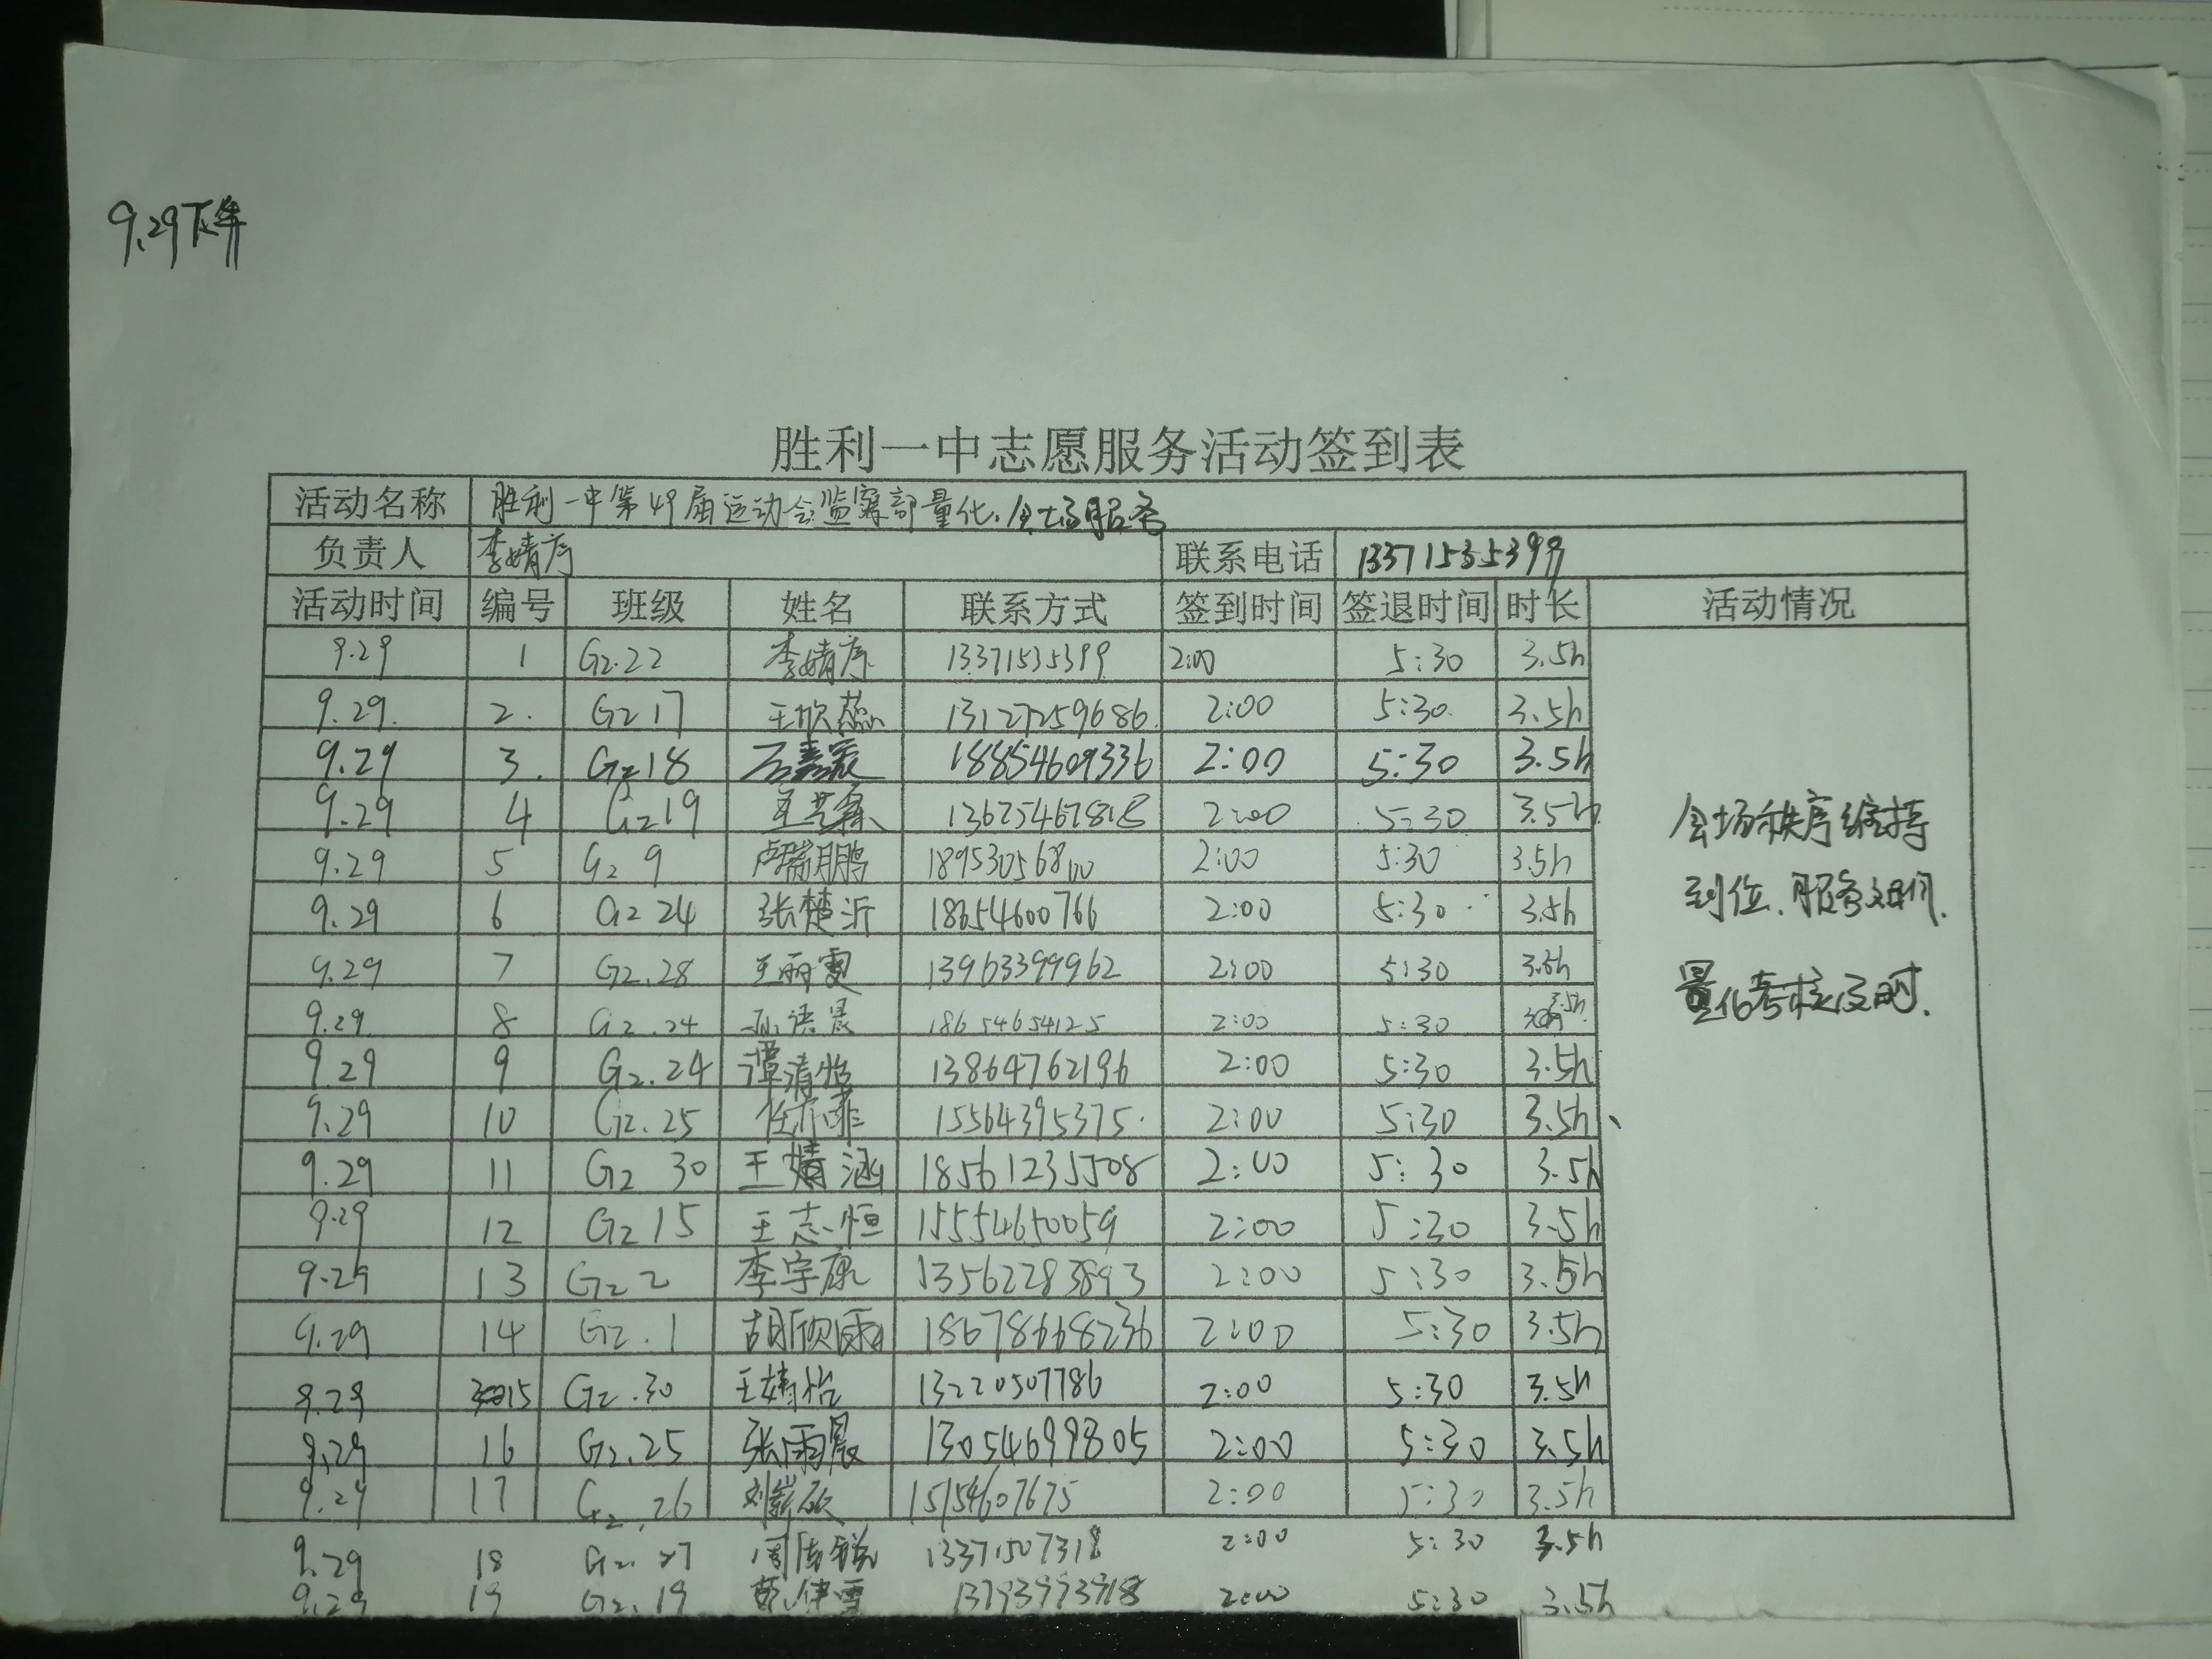 9.29下午
胜利一中志愿服务活动签到表
活动名称 胜利一中第49届运动会监察部量化、会场服务
负责人 李婧序 联系电话 13371535399
活动时间 编号 班级 姓名 联系方式 签到时间 签退时间 时长 活动情况
9.29 1 G2.22 李婧序 13371535399 2:00 5:30 3.5h
9.29. 2. G2 17 王欣蕊 13127259686. 2:00 5:30. 3.5h
9.29 3. G2 18 18854609336 2:00 5:30 3.5h
9.29 4 G2 19 13675467818 2:00 5:30 3.5h
9.29 5 G2 9 卢瑞鹏 18953056800 2:00 5:30 3.5h
9.29 6 G2 24 张楚沂 18654600766 2:00 5:30 3.5h
9.29 7 G2.28 王雨雯 13963399962 2:00 5:30 3.5h
9.29 8 G2.24 孙语晨 18654654125 2:00 5:30 3.5h
9.29 9 G2.24 谭清怡 13864762196 2:00 5:30 3.5h
9.29 10 G2.25 任亦菲 15564395375. 2:00 5:30 3.5h
9.29 11 G2 30 王婧涵 18561235508 2:00 5:30 3.5h
9.29 12 G2 15 王志恒 15554650059 2:00 5:30 3.5h
9.29 13 G2 2 李宇康 13562283893 2:00 5:30 3.5h
9.29 14 G2.1 胡欣雨 18678668236 2:00 5:30 3.5h
9.29 15 G2.30 王婧怡 13220507786 2:00 5:30 3.5h
9.29 16 G2.25 张雨晨 13054699805 2:00 5:30 3.5h
9.29 17 G2.26 15154607675 2:00 5:30 3.5h
9.29 18 G2.27 13371507318 2:00 5:30 3.5h
9.29 19 G2.19 13793973918 2:00 5:30 3.5h
会场秩序维持
到位、服务周到.
量化考核及时.